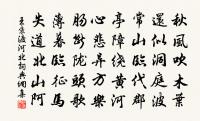 秋風吹木葉
還似洞庭波
常山臨代郡
亭障繞黄河
心悲異方樂
腸斷隴頭歌
薄暮臨征馬
失道北山阿
王褒渡河北詞典網集